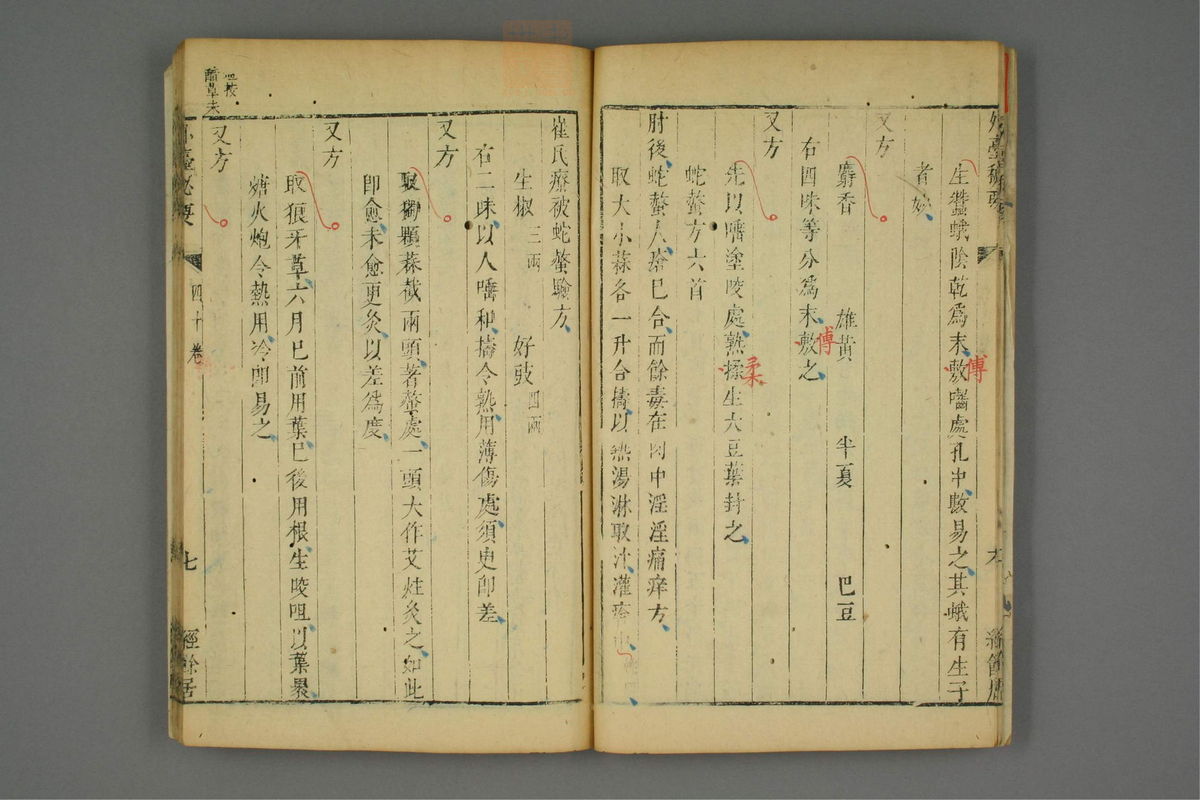 生蠶蛾陰乾爲末敷嚙處孔中數易之其蛾有生子
傅
者妙
又方
麝香 雄黃 半夏 巴豆
右四味等分爲末敷之
傅
又方
先以嚼塗咬處熟揉生大豆葉封之
柔
蛇螫方六首
肘後蛇螫人瘡已合而餘毒在肉中淫淫痛痒方
取大小蒜各一升合擣以熱湯淋取汁灌瘡中
崔氏療被蛇螫驗方
生椒三兩 好豉四兩
右二味以人嚼和擣令熟用薄傷處須臾即差
又方
取獨顆蒜截兩頭著螫處一頭大作艾炷灸之如此
即愈未愈更灸以差爲度
又方
取狼牙草六月已前用葉已後用根生咬咀以葉裹
煻火炮令熱用冷即易之
又方
外臺祕要 四十卷 七 經餘居